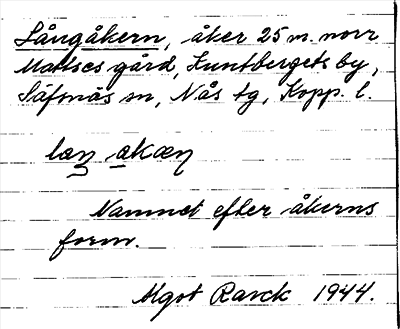 Långåkern, åker 25 m. norr
Mattses gård, Luntbergets by,
Säfsnäs sn, Nås tg, Kopp. l.
Namnet efter åkerns
form.
Mgot Rarck 1944.